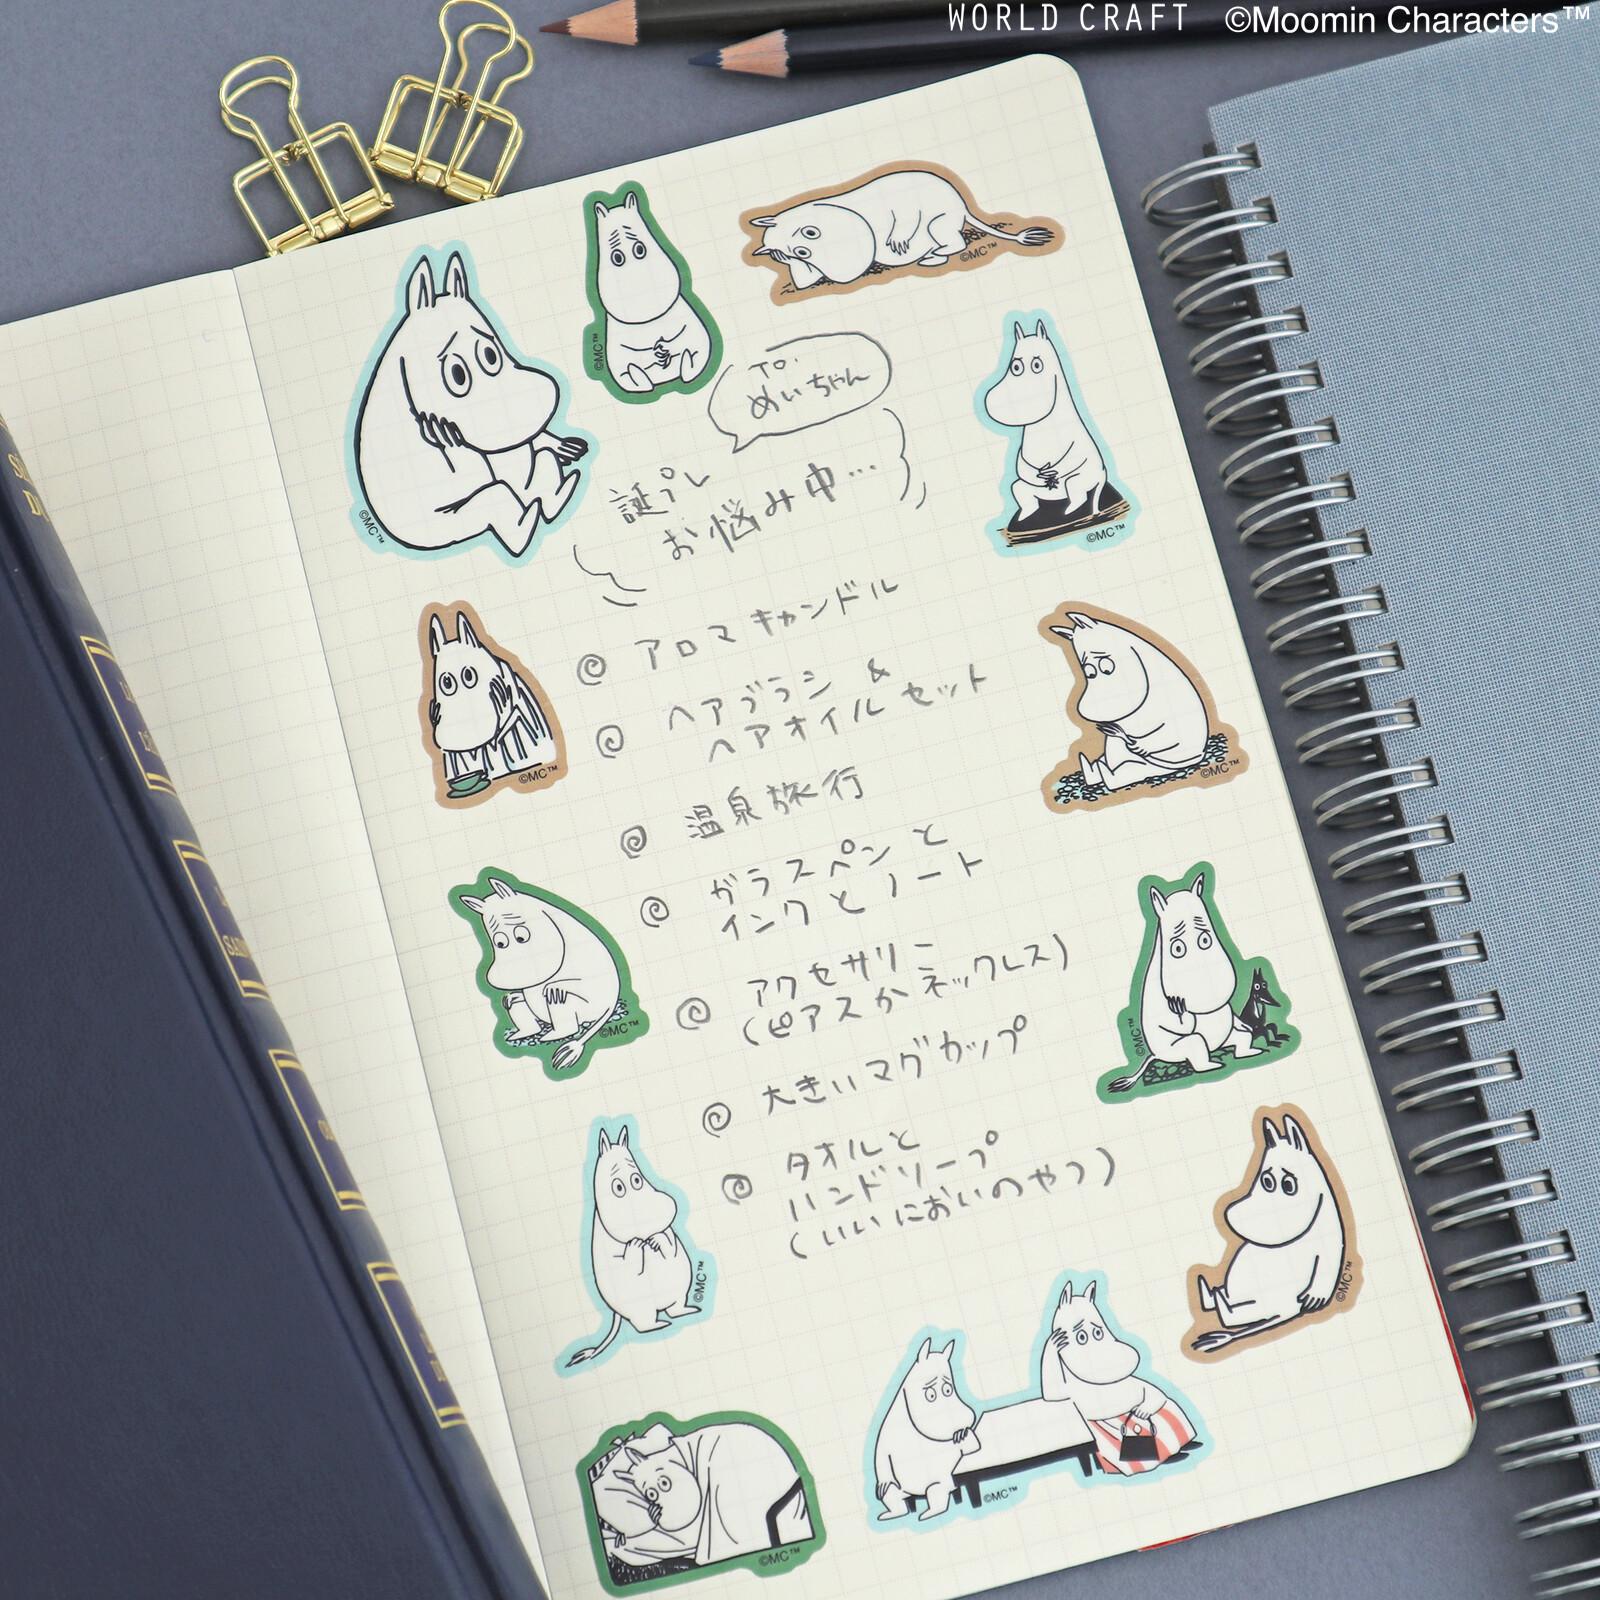 WORLD CRAFT ©Moomin Characters™
To.
めいちゃん
誕プレ
お悩み中…
アロマキャンドル
ヘアブラシ &
ヘアオイルセット
温泉旅行
ガラスペンと
インクとノート
アクセサリー
(ピアスかネックレス)
大きいマグカップ
タオルと
ハンドソープ
(いいにおいのやつ)
©MC™
©MC™
©MC™
©MC™
©MC™
©MC™
©MC™
©MC™
©MC™
©MC™
©MC™
©MC™